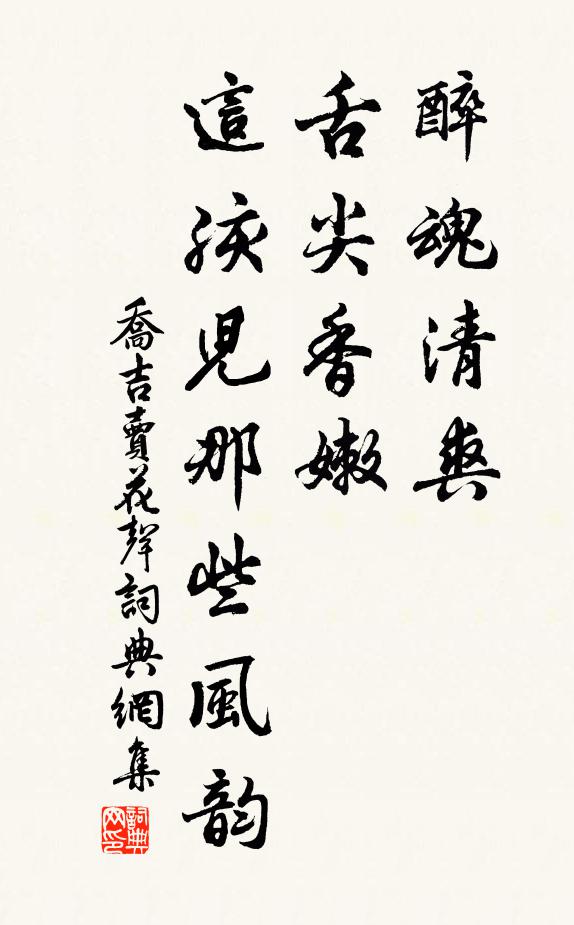 醉魂清爽
舌尖香嫩
這孩児那些風韵
喬吉賣花聲詞典網集
詞典网印